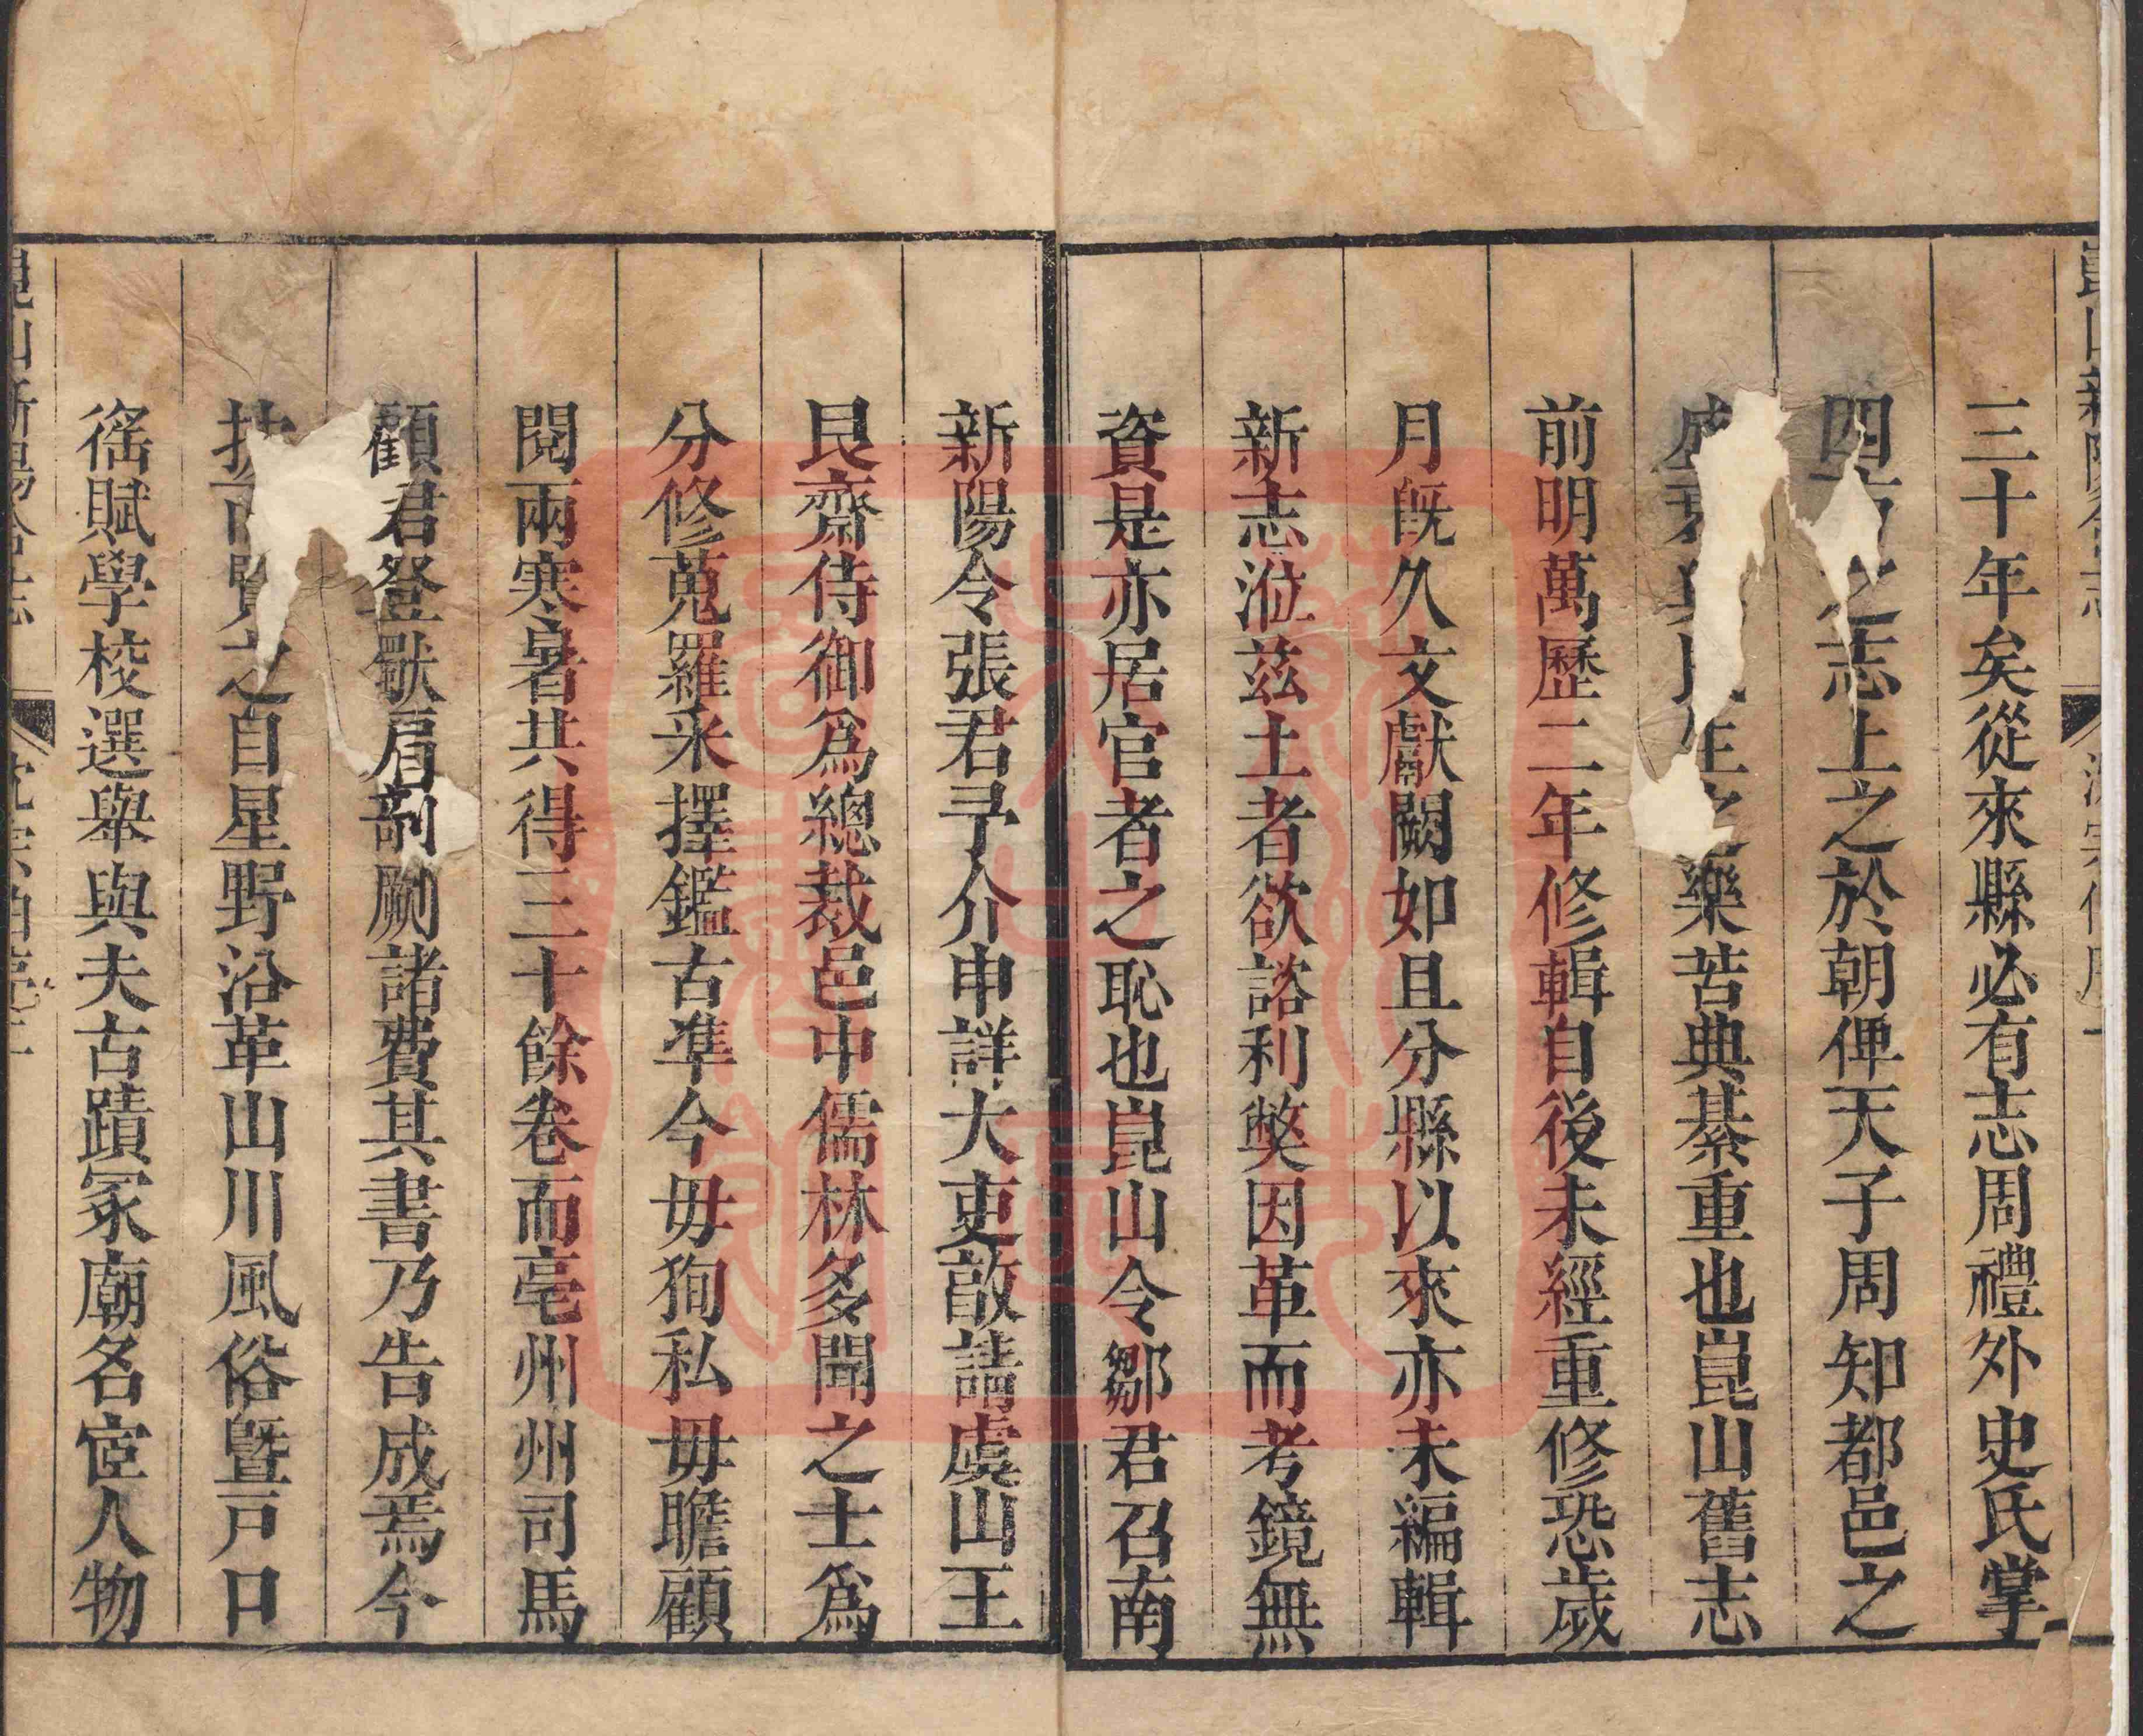 三十年矣從來縣必有志周禮外史氏掌
四方之志上之於朝俾天子周知都邑之
盛衰與民生之樂苦典綦重也崑山舊志
前明萬歷二年修輯自後未經重修恐歲
月旣久文獻闕如且分縣以來亦未編輯
新志涖茲土者欲諮利獘因革而考鏡無
資是亦居官者之恥也崑山令鄒君召南
新陽令張君予介申詳大吏敦請虞山王
艮齋侍御爲總裁邑中儒林多聞之士爲
分修蒐羅采擇鑑古準今毋狥私毋瞻顧
閱兩寒暑共得三十餘卷而亳州州司馬
顧君登獣肩剞劂諸費其書乃告成焉今
之自星野沿革山川風俗曁戸口
徭賦學校選舉與夫古蹟冢廟名宦人物
崑山新陽合志